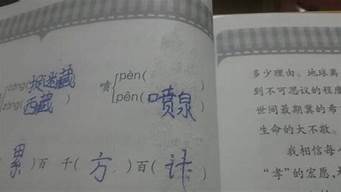 捉迷藏
西藏)
喷
pèn(
pēn(喷泉)
累)百 千(方)百(计
多少理由，地球离
到不可思议的程度
世间最期冀的希
生命的大不敬。
我相信每
“孝”的宏愿，